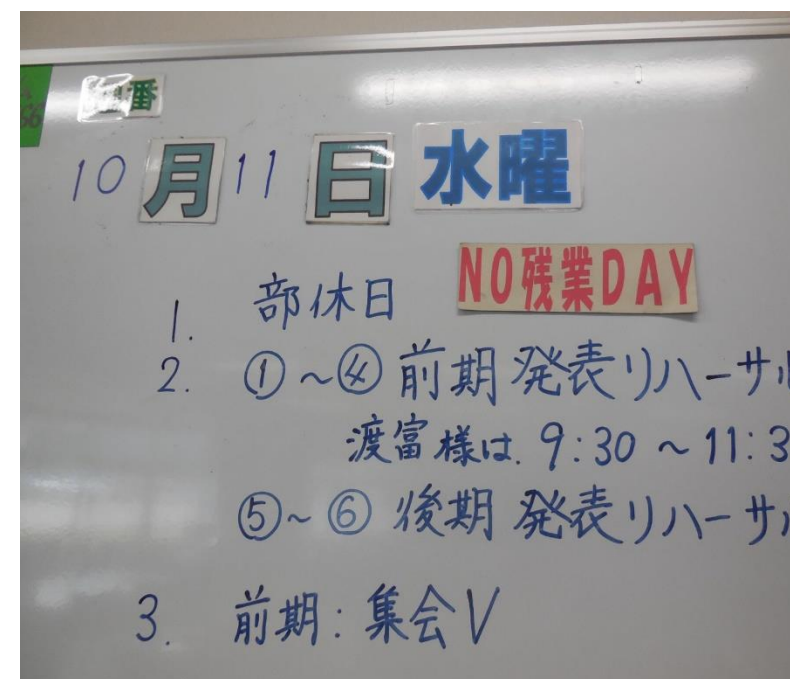 番
66
10月11日 水曜
NO残業DAY
1. 部休日
2. ①~④ 前期 発表リハーサル
渡富様は. 9:30 ~ 11:3
⑤~⑥ 後期 発表リハーサル
3. 前期: 集会V